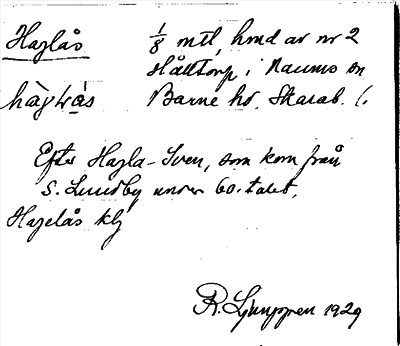 Haglås 1/8 mtl, hmd av nr 2
Håltorp i Naums sn
hàɣlǻs Barne hd, Skarab. l.
Efter Hagla-Sven, som kom från
S. Lundby under 60-talet.
Hagelås klj
R. Ljunggren 1929